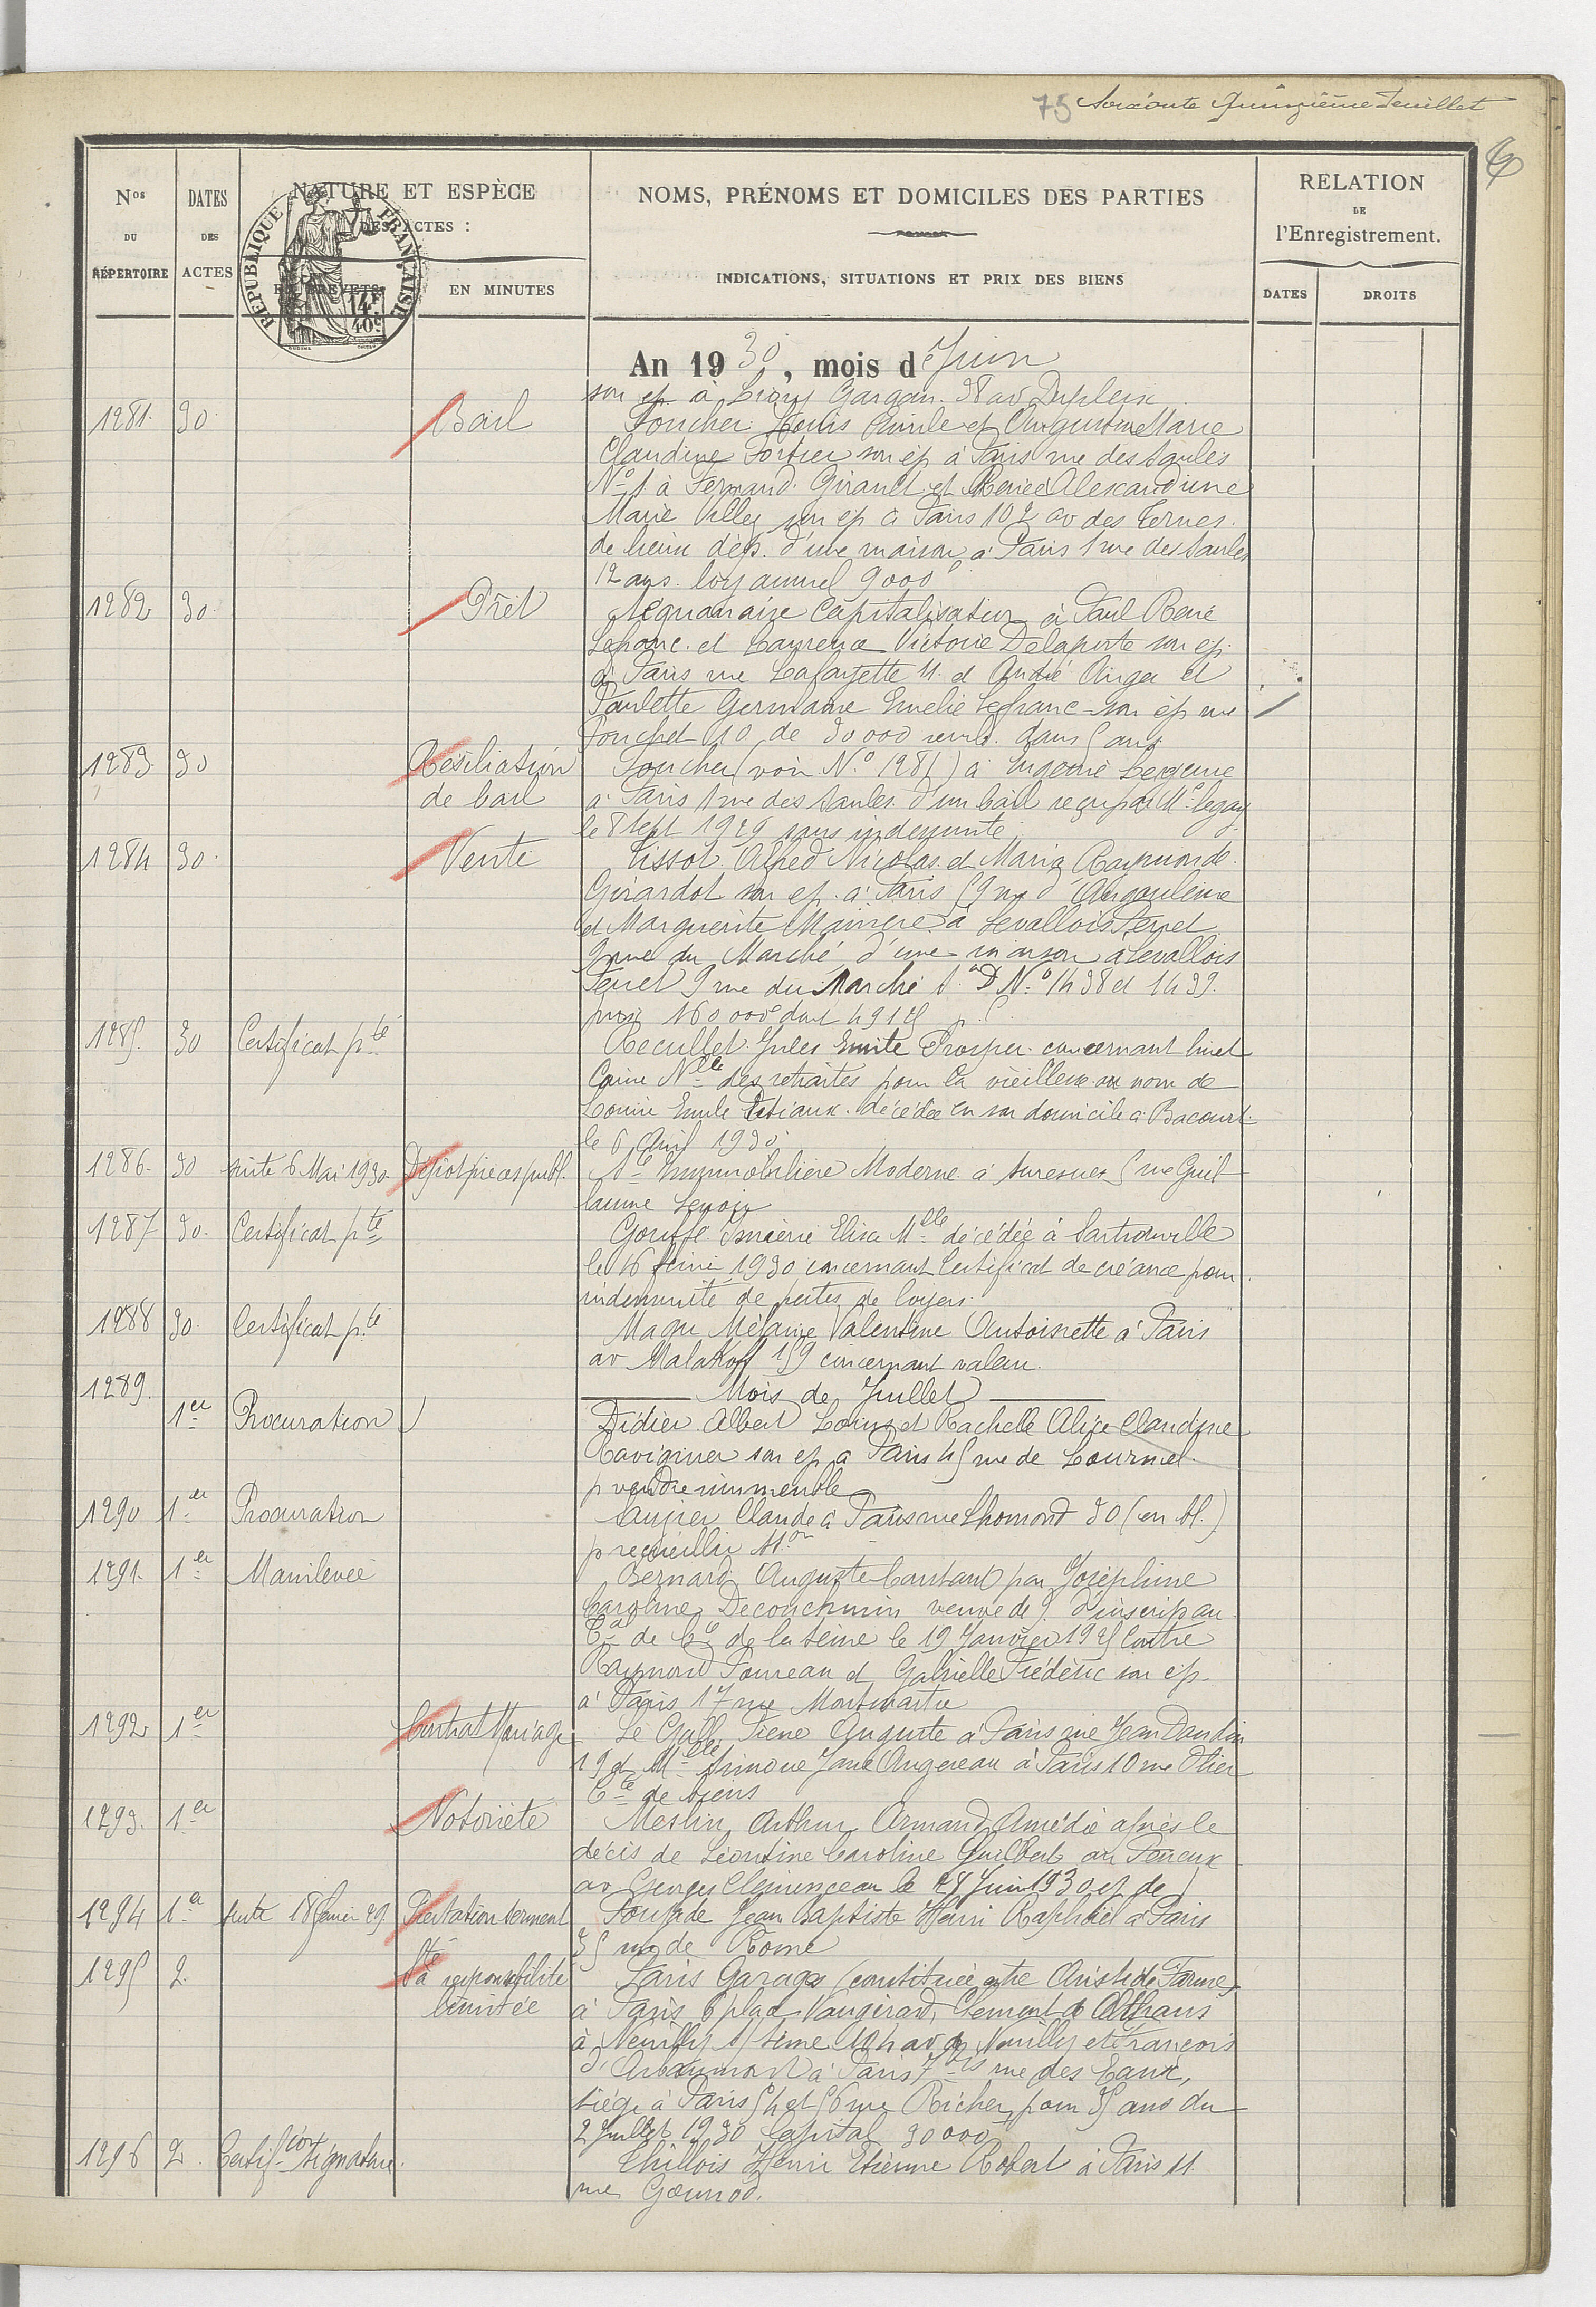 75 Soixante Quinzième feuillet
Nos DU RÉPERTOIRE
DATES DES ACTES
NATURE ET ESPÈCE DES ACTES :
EN BREVETS
EN MINUTES
RÉPUBLIQUE FRANÇAISE
NOMS, PRÉNOMS ET DOMICILES DES PARTIES
INDICATIONS, SITUATIONS ET PRIX DES BIENS
RELATION DE l'Enregistrement.
DATES
DROITS
An 1930, mois de Juin
son ep à Livry Gargan 38 av Dupleix
1281. 30 Bail Foucher Louis Emile et Augustine Marie
Claudine Fortier son ep à Paris rue des Saules
No 1. à Fernand Girault et Renée Alexandrine
Marie Villey son ep à Paris 102 av des Ternes.
de lieux dép. d'une maison à Paris 1 rue des Saules
12 ans. loy annuel 9000
1282 30. Prêt Séquanaise Capitalisation à Paul René
Lefranc et Laurence Victorie Delaporte son ep.
à Paris rue Lafayette 11. et André Auger et
Paulette Germaine Emelie Lefranc son ép rue
10 de 30000 remb. dans 5 ans
1283 30 Résiliation de bail Foucher (voir No 1281) à Eugenie
à Paris 1 rue des Saules d'un bail reçu par Me Legay
le 8 Sept 1929 sans indemnité
1284 30. Vente Tissot Alfred Nicolas et Maria Raymonde
Girardot son ep. à Paris 59 rue d'Angoulême
et Marguerite à Levallois Perret
9 rue du Marché d'une maison à Levallois
Perret 9 rue du Marché S. D No 1438 et 1439.
prix 160 000 dont 4915 p. C.
1285. 30 Certificat pté Recullet Jules Emile Prosper. concernant livret
Caisse Nlle des retraites pour la vieillesse au nom de
Louise Emile décédée en son domicile à Bacourt
le 6 Avril 1930.
1286. 30 suite 6 Mai 1930 Dépôt pièces publ. Sé Immobilière Moderne à Suresnes 5 rue Guil
laume Lenoir
1287 30. Certificat pté Gouffé Elisa Mlle décédée à Sartrouville
le 16 février 1930 concernant Certificat de créance pour
indemnité de pertes de loyers.
1288 30. Certificat pté Magu Mélanie Valentine Antoinette à Paris
av Malakoff 159 concernant valeur.
1289. Mois de Juillet
1er Procuration Didier Albert Louis et Rachelle Alice Claudine
Ravigner son ep à Paris 45 rue de Lourmel
p vendre immeuble
1290 1er Procuration Claude à Paris rue Lhomond 30 (en bl.)
p recueillir
1291. 1er Mainlevée Bernard Auguste Constant par Joséphine
Caroline Decouchmin veuve de J. d'inscrip au
de la Seine le 19 Janvier 1925 contre
Raymond et Gabrielle Frédéric son ep.
à Paris 17 rue Montmartre
1292 1er Contrat Mariage Le Gall Auguste à Paris rue Jean Daudin
19 et Mlle Simone Jane Augereau à Paris 10 rue Olier
Cté de biens
1293. 1er Notoriété Meslin Arthur Armand Amédée après le
décès de Léontine Caroline Guilbert au Perreux
av Georges Clémenceau le 28 Juin 1930 ep de
1294 1er suite 18 Janvier 29 Prestation serment Jean Baptiste Henri Raphaël à Paris
35 rue de Rome
1295 2. Sté à responsabilité limitée Paris Garages (constituée entre Aristide Farines
à Paris 6 place Vaugirard, Clement de Althaus
à Neuilly s/ Seine 104 av de Neuilly et François
d'Arbaumont à Paris 7 bis rue des Eaux,
siège à Paris 54 et 56 rue Richer, pour 35 ans du
2 Juillet 1930 Capital 30000
1296 2. Certif. con signature. Thillois Henri Etienne Robert à Paris 11
rue Gounod.